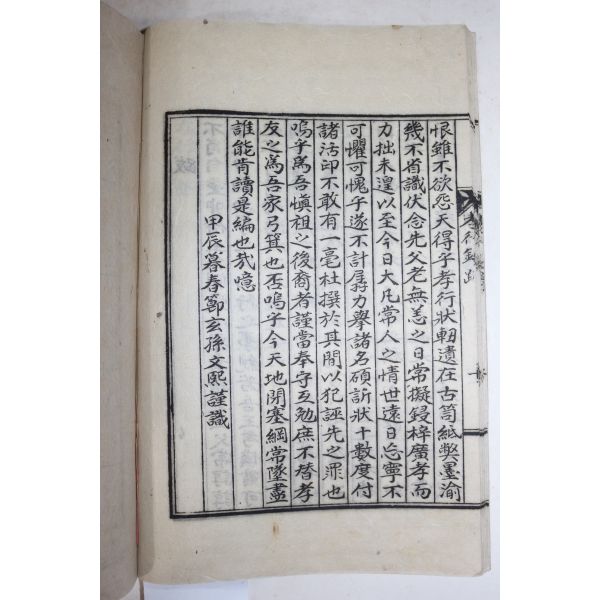 恨雖不欲怨天得乎孝行狀軔遺在古笥紙弊墨渝
幾不省識伏念先父老無恙之日常擬鋟梓廣孝而
力拙未遑以至今日大凡常人之情世遠日忘寧不
可懼可愧乎遂不計孱力擧諸名碩訴狀十數度付
諸活印不敢有一毫杜撰於其間以犯誣先之罪也
嗚乎爲吾愼祖之後裔者謹當奉守互勉庶不替孝
友之爲吾家弓箕也否嗚乎今天地閉塞綱常墜盡
誰能肯讀是編也哉噫
甲辰暮春鄭玄孫文熙謹識